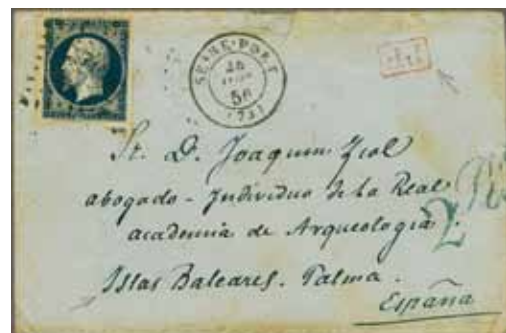 SEINE-PORT
56
(73)
Sr. D. Joaquin Fiol
abogado - Individuo de la Real
academia de Arqueología.
Islas Baleares. Palma.
España